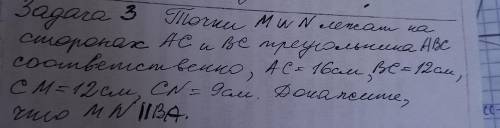 Задача 3 Точки M и N лежат на
сторонах AC и BC треугольника ABC
соответственно, AC = 16см, BC = 12см,
CM = 12см, CN = 9см. Докажите,
что MN || BA.